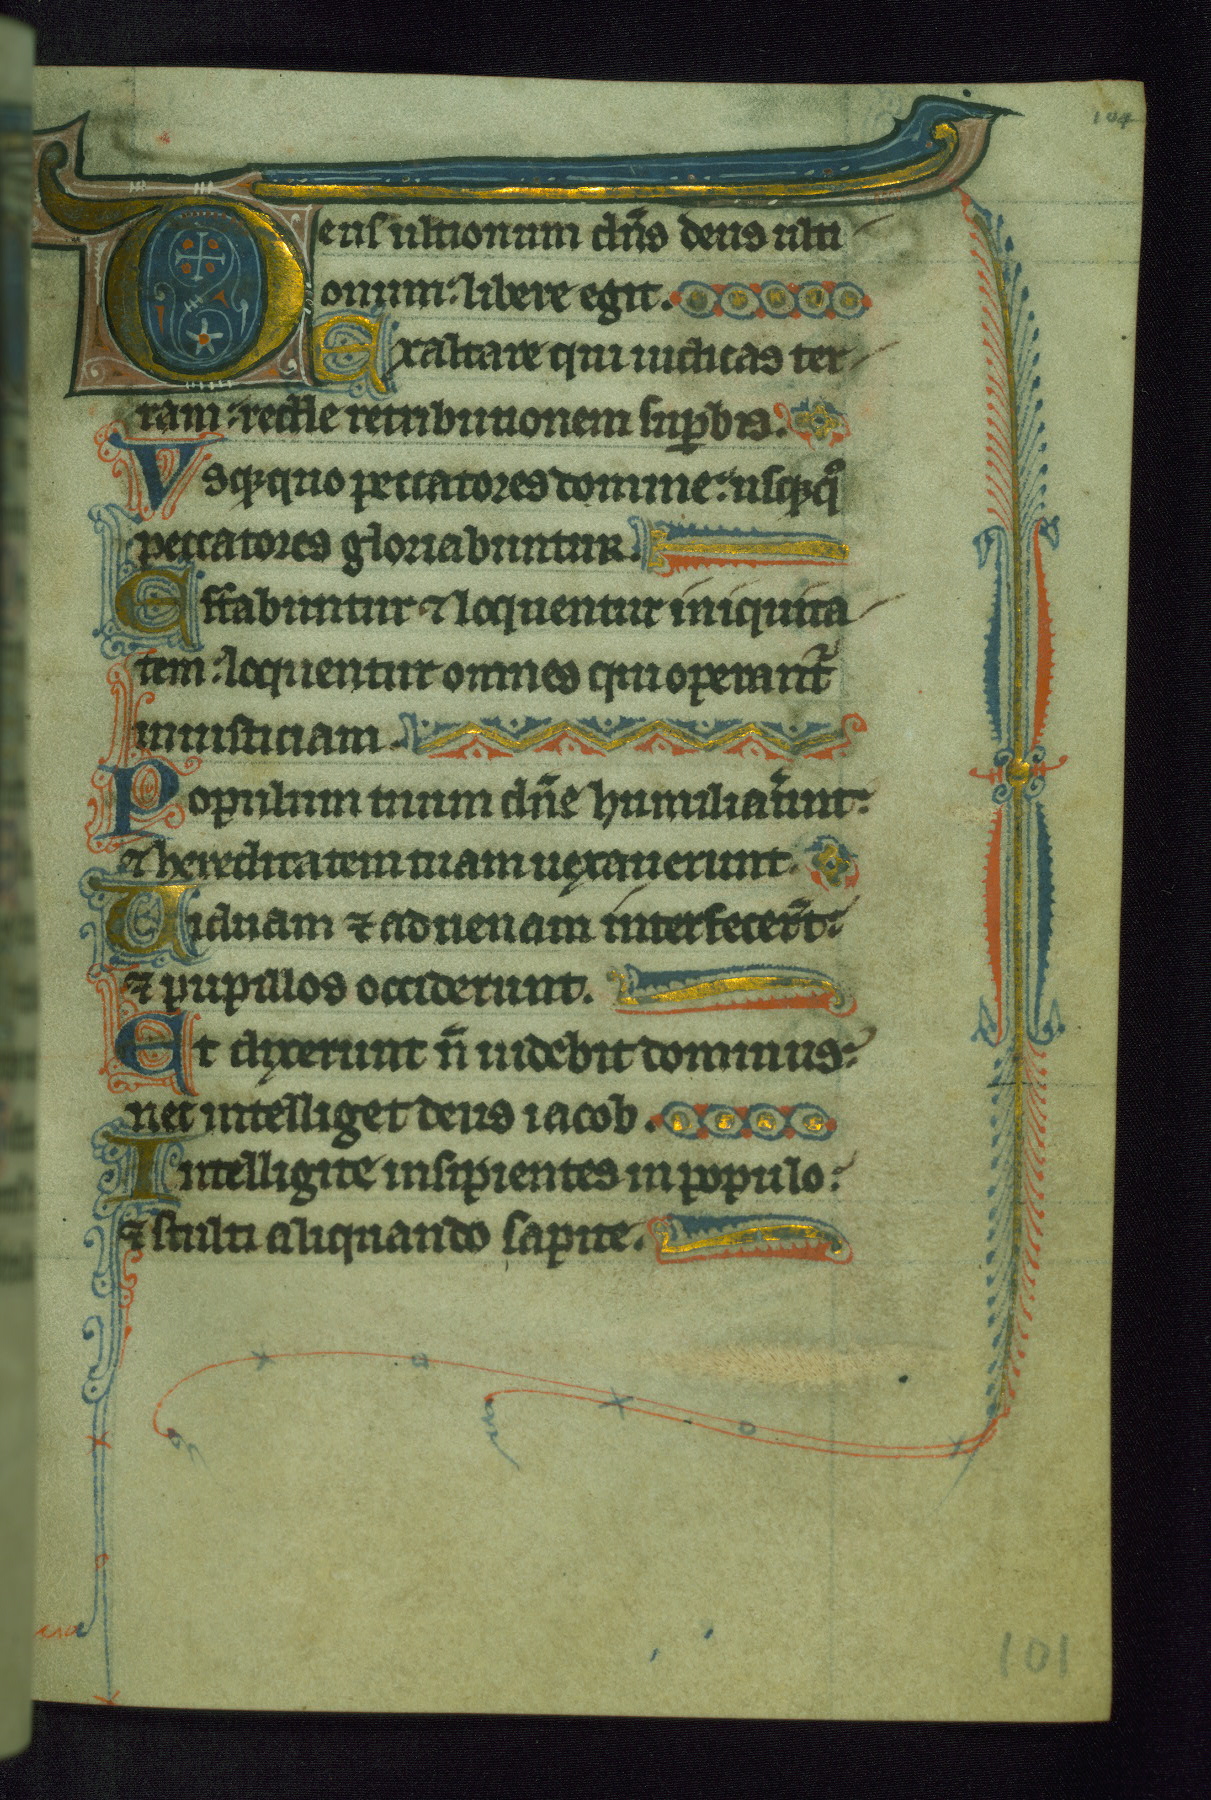 104
Deus ultionum dn̄s deus ulti
onum: libere egit.
Exaltare qui iudicas ter
ram: redde retributionem sup̱bis.
Vsqꝫquo peccatores domine: usqꝫq°
peccatores gloriabuntur.
Effabuntur ⁊ loquentur iniquita
tem: loquentur omnes qui operant᷑
iniusticiam.
Populum tuum dn̄e humiliauer̄unt:
⁊ hereditatem tuam uexauerunt.
Uiduam ⁊ aduenam interfecer̄t:
⁊ pupillos occiderunt.
Et dixerunt n̄ uidebit dominus:
nec intelliget deus iacob.
Intelligite insipientes in populo:
⁊ stulti aliquando sapite.
101